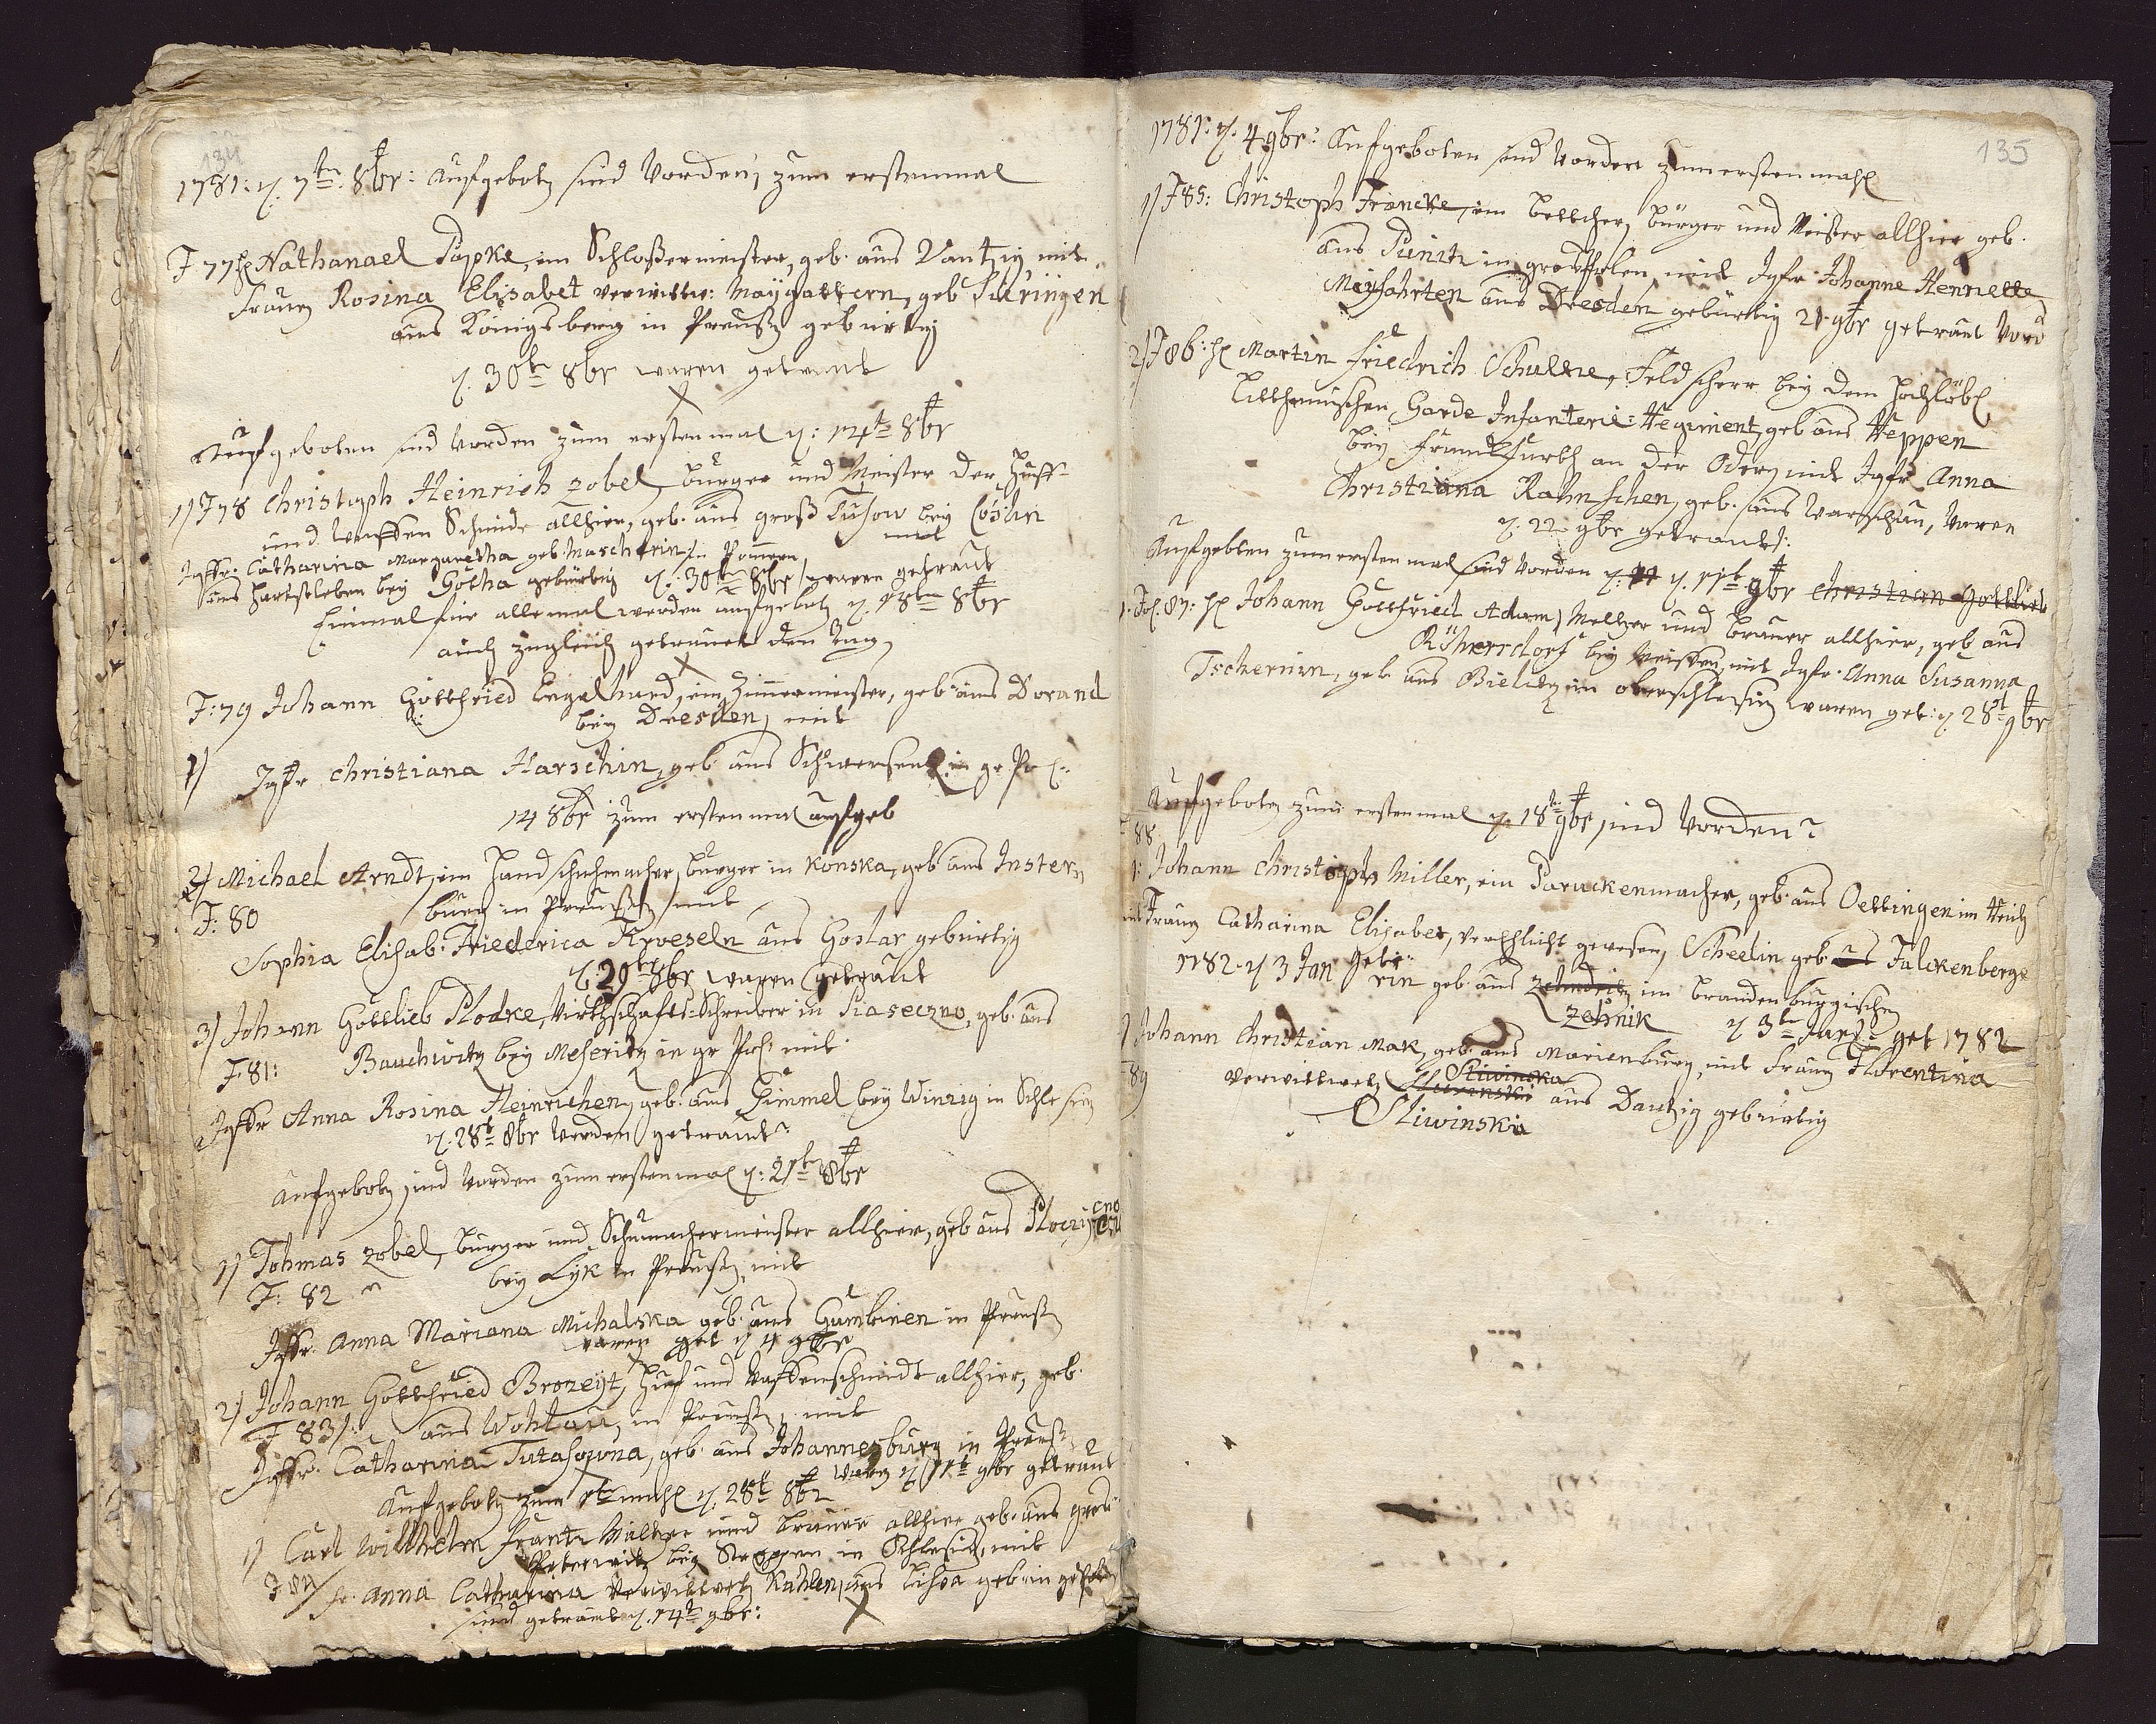 134
1781: d. 7ten 8br: aufgeboten sind worden, zum erstenmal
F 77 H Nathanael Papke, ein Schloßermeister, geb. aus Dantzig mit
Frauen Rosina Elisabet verwittw: Maÿgattern, geb.
aus Königsberg in Preußen gebürtig
d. 30t 8br waren getraut
Aufgeboten sind worden zum erstenmal d: 14t 8br
1) F 78 Christoph Heinrich Zobel, burger und Meister der Huff-
und Waffen Schmide allhier, geb. aus groß Tuhow beÿ Cöslin
in Pomern mit
Jgffr. Catharina Margaretha geb. Mascherin
aus beÿ Gotha gebürtig d: 30ten 8br waren getraut
Einmal für allemal worden aufgebot d. 18ten 8br
auch zugleich getrauet den Tag
F: 79 Johann Gottfried Engelhard, ein Zimmermeister, geb. aus Dorand
beÿ Dresden, mit
1) Jgfr Christiana Harschin, geb. aus Schwersentz in gr Pol:
14 8br zum erstenmal aufgeb
2) Michael Arndt, ein Handschuhmacher, burger in Konska, geb aus Instern
F: 80 burg in Preußen, mit
Sophia Elisab. Friederica Kroeseln aus Goslar gebürtig
d. 29ten 8br waren getraut
3) Johann Gottlieb Plodke, Wirthschafts-Schreiber in Piaseczno, geb. aus
F. 81: Bauchwitz beÿ Meseritz in gr Pol. mit
Jgffr Anna Rosina Heinrichen, geb. aus Gimmel beÿ Winzig in Schlesien
d. 28t 8br worden getraut
Aufgebot sind worden zum erstenmal d: 21t 8br
1) Tohmas Zobel, Burger und Schumachermeister allhier, geb aus
F: 82 beÿ Lÿk in Preußen, mit
Jgffr. Anna Mariana Michalska geb. aus Gumbinen in Preußen
waren get d 4 9br
2) Johann Gottfried Brozeÿt, Huf und Waffenschmidt allhier, geb.
F 83) aus Wohlau, in Preußen, mit
Jgffr. Catharina geb. aus Johannesburg in Preuß.
waren d 11t 9br getraut
Aufgebot zum 1tenmahl d. 28t 8br
1) Carl Willhelm Frantz Miltzer und Brauer allhier geb. aus groß
Peterwitz beÿ Stroppen in Schlesien, mit
F 84 fr. Anna Catharina verwittwet aus Lissa geb. in gr Polen
sind getraut d. 14t 9br:
135
1781: d. 4 9br: Aufgeboten sind worden zum erstenmahl
1) F 85: Christoph Francke, ein Bettcher, Bürger und Meister allhier geb.
aus Punitz in grospohlen mit Jgfr Johanne Hennette
Maÿfahrten aus Dresden gebürtig 21. 9br getraut word
2) F 86: H Martin Friedrich Schultze, Feldscherr beÿ dem Hochlöbl
Litthauischen Garde Infanterie-Regiment, geb aus Reppen
beÿ Franckfurth an der Oder, mit Jgfr Anna
Christiana Rahnschen, geb. aus Warschau, waren
d. 22 9br getraut
Aufgebten zum erstenmal sind worden d. 11 d. 11t 9br Christian Gottlieb
1. F. 87: H Johann Gottfried Adam, Meltzer und Brauer allhier, geb aus
Rührsdorf beÿ Meissen, mit Jgfr. Anna Susanna
Tschernin, geb aus Bielitz in oberschlesien waren get: d. 28t 9br
Aufgebotn zum erstenmal d. 18t 9br sind worden
F 88
1: Johann Christoph Miller, ein Paruckenmacher, geb. aus Oettingen im Reich
mit Frauen Catharina Elisabet, verehlicht gewesen, Scheelin geb. aus Falckenberge
1782. d 3 Jan getr. rin geb. aus Zehndeik im Brandenburgischen
Zehnik d 3ten Jan get 1782
2 Johann Christian Mak, geb. aus Marienburg, mit Frauen Florentina
F 89 verwittwet Sliwinska aus Dantzig gebürtig
Sliwinska